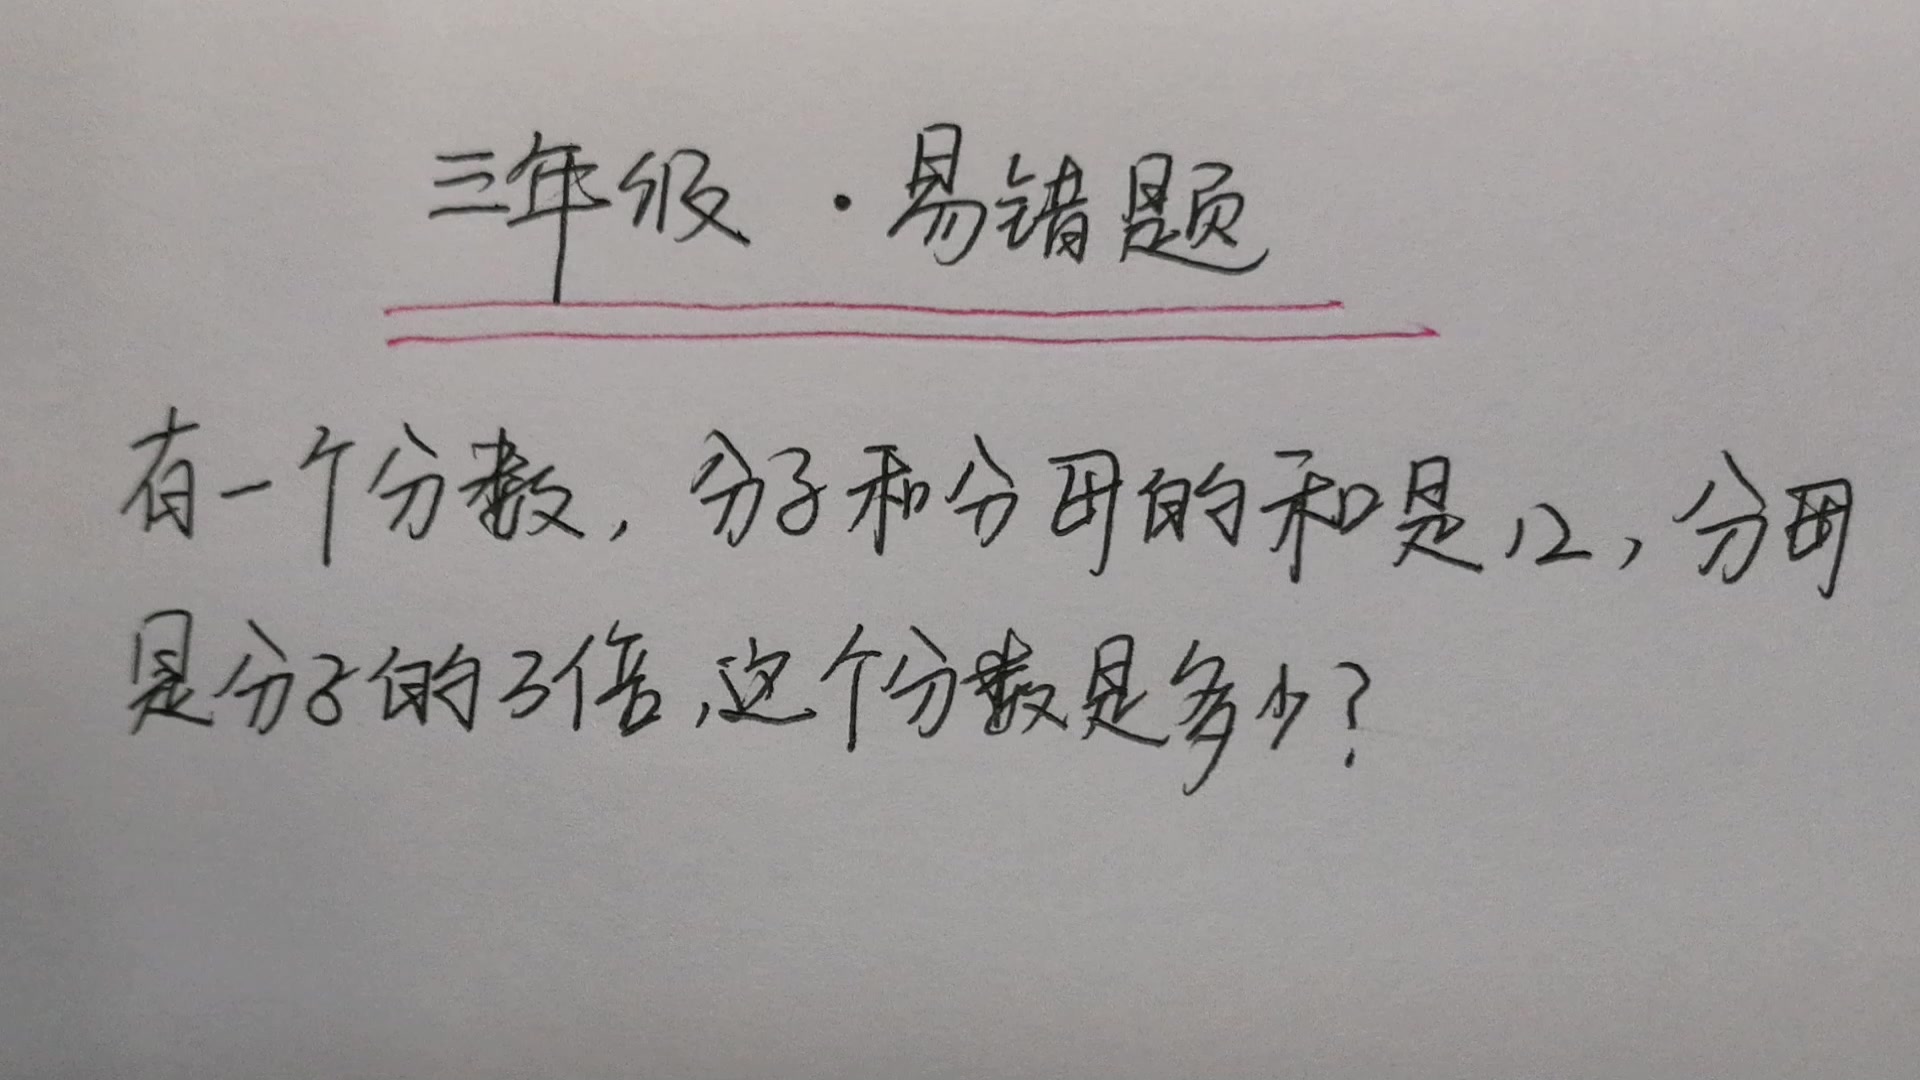 三年级·易错题
有一个分数,分子和分母的和是12,分母
是分子的3倍,这个分数是多少?